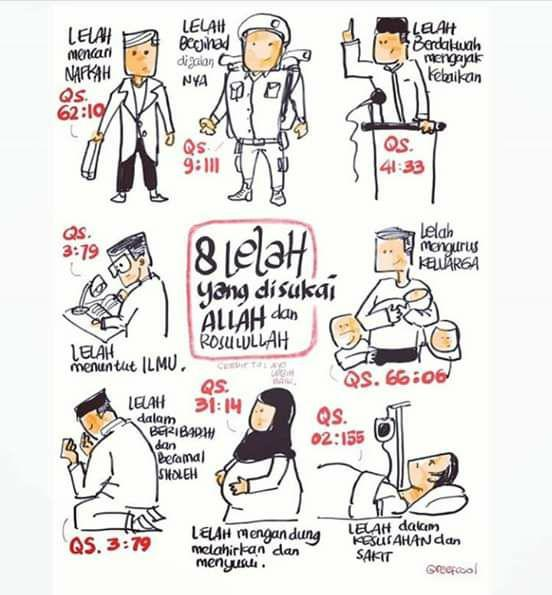 LELAH
mencari
NAFKAH
QS.
62:10
LELAH
Berjihad
dijalan
NYA
QS.
9:111
LELAH
Berdakwah
mengajak
kebaikan
QS.
41:33
QS.
3:79
LELAH
menuntut ILMU.
8 LELAH
yang disukai
ALLAH dan
ROSULULLAH
Lelah
mengurus
KELUARGA
QS. 66:06
LELAH
dalam
BERIBADAH
dan
Beramal
SHOLEH
QS. 3:79
QS.
31:14
LELAH mengandung
melahirkan dan
menyusui.
QS.
02:155
LELAH dalam
KESUSAHAN dan
SAKIT